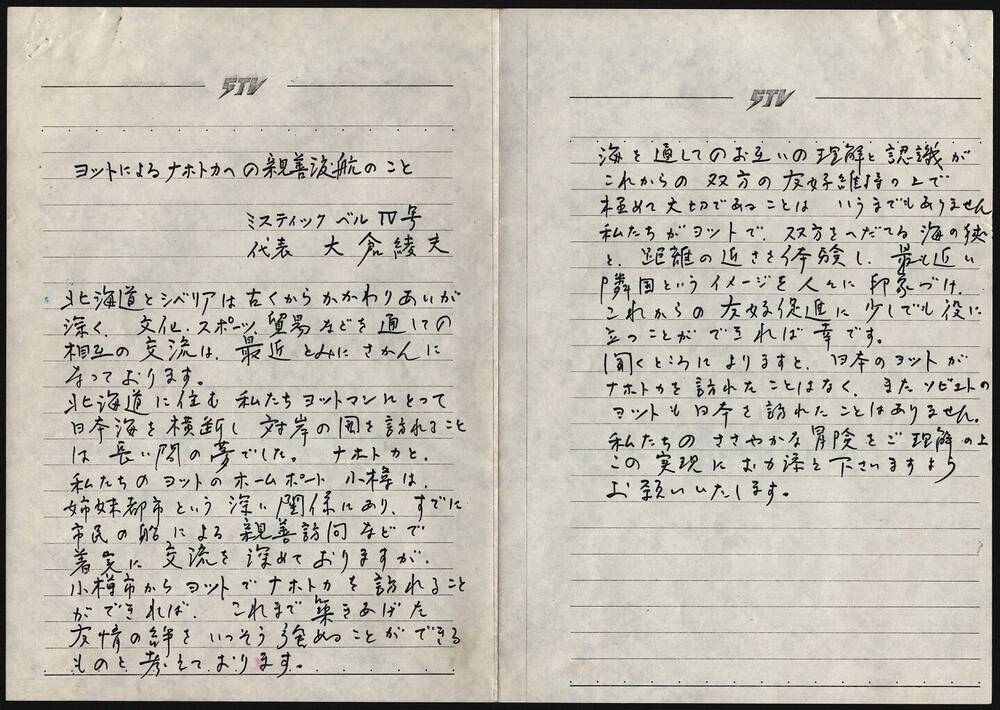 STV
ヨットによるナホトカへの親善渡航のこと
ミスティック ベル Ⅳ号
代表 大倉綾夫
北海道とシベリアは古くからかかわりあいが
深く、文化、スポーツ、貿易などを通しての
相互の交流は、最近とみにさかんに
なっております。
北海道に住む私たちヨットマンにとって
日本海を横断し対岸の国を訪れること
は長い間の夢でした。ナホトカと、
私たちのヨットのホームポート小樽は、
姉妹都市という深い関係にあり、すでに
市民の船による親善訪問などで
着実に交流を深めておりますが、
小樽市からヨットでナホトカを訪れること
ができれば、これまで築きあげた
友情の絆をいっそう強めることができる
ものと考えております。
STV
海を通してのお互いの理解と認識が
これからの双方の友好維持の上で
極めて大切であることは いうまでもありません
私たちがヨットで、双方をへだてる海の狭
と、距離の近さを体験し、最も近い
隣国というイメージを人々に印象づけ、
これからの友好促進に少しでも役に
立つことができれば幸です。
聞くところによりますと、日本のヨットが
ナホトカを訪れたことはなく、またソビエトの
ヨットも日本を訪れたことはありません。
私たちのささやかな冒険をご理解の上
この実現にお力添え下さいますよう
お願いいたします。